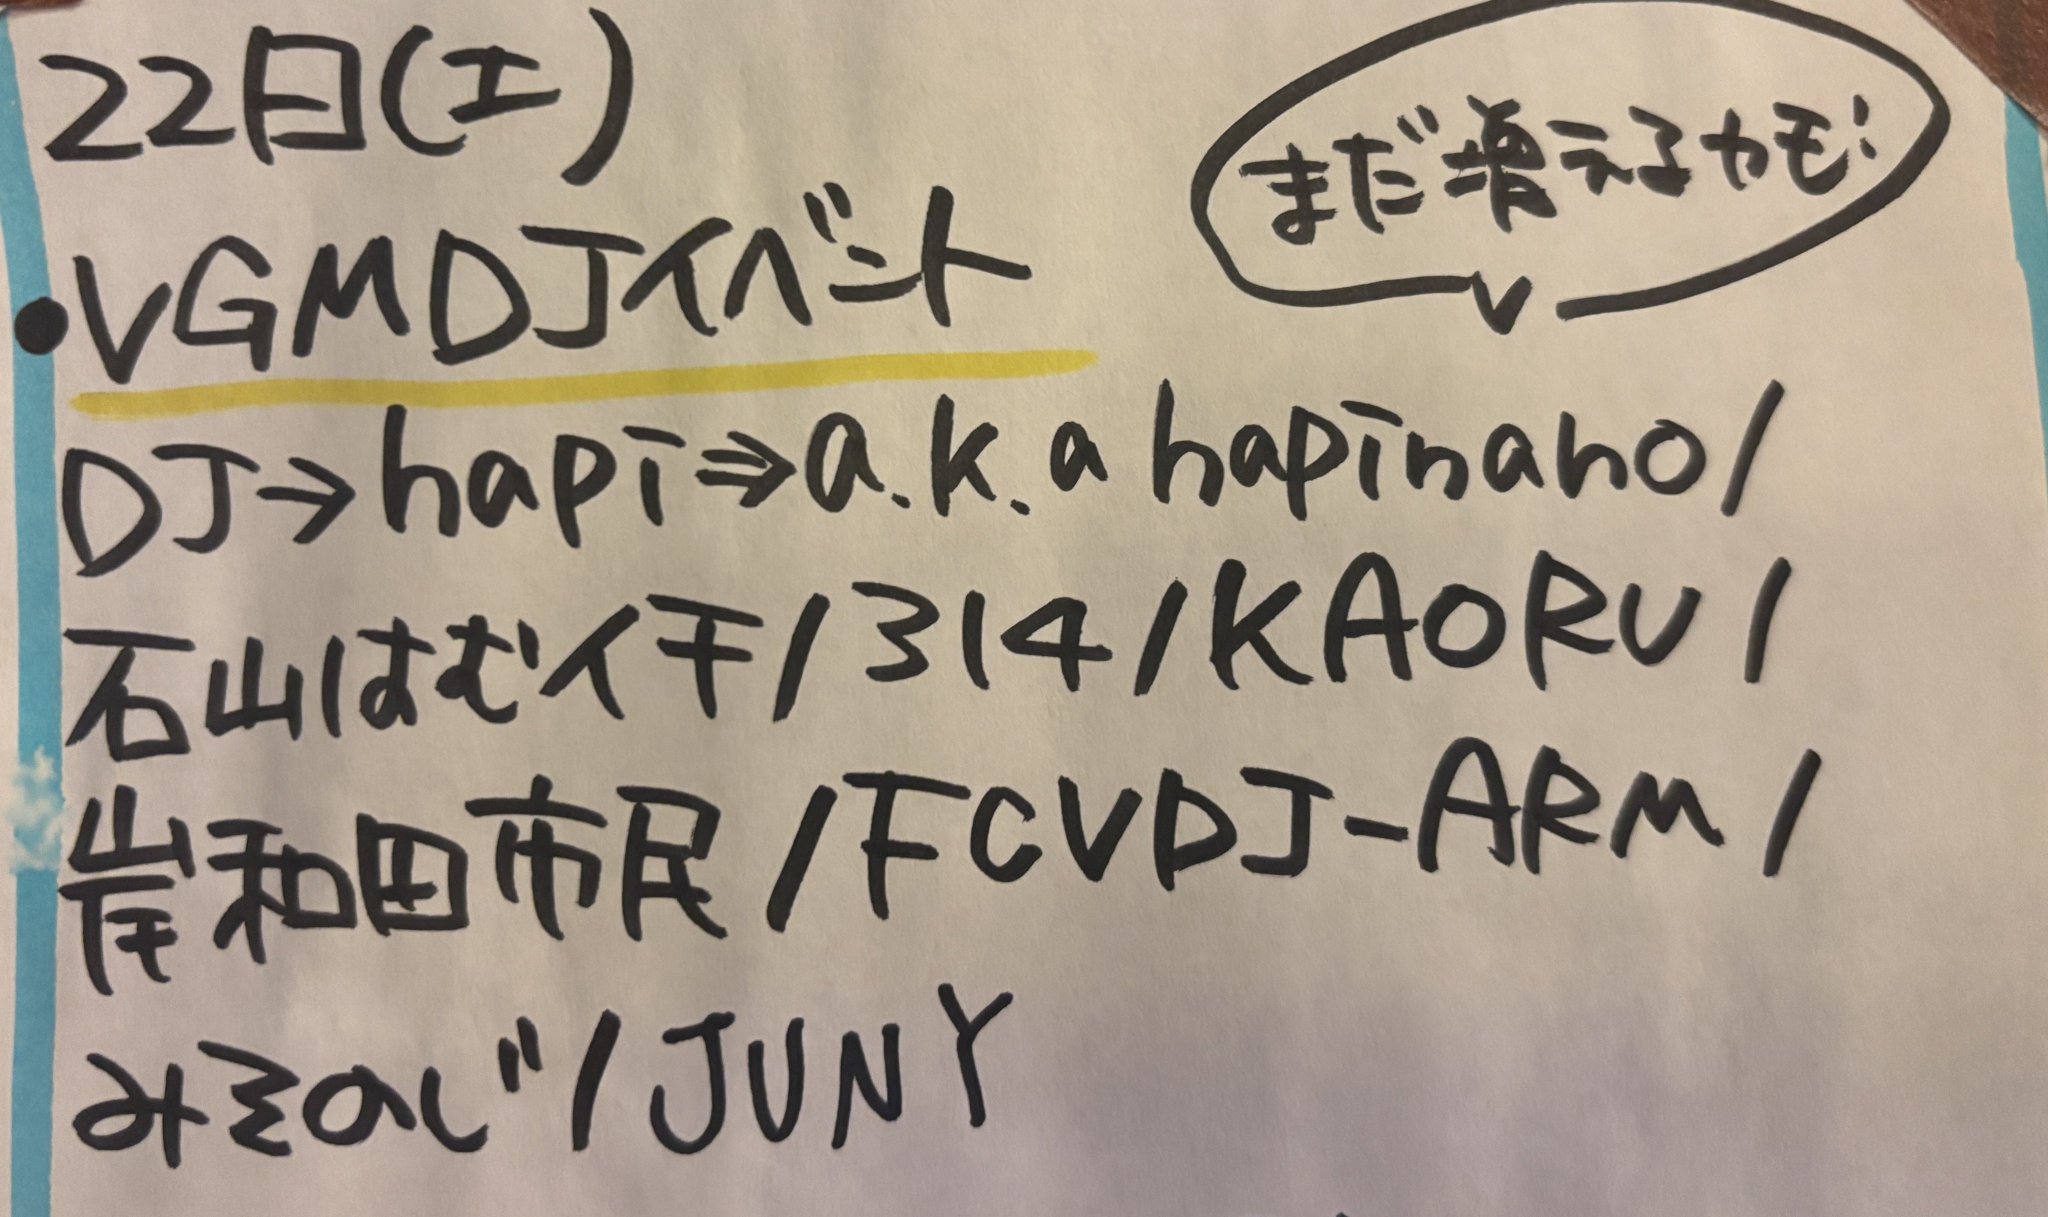 22日(土)
まだ増えるカモ!
・VGMDJイベント
DJ→hapi⇒a.k.a hapinano/
石山はむイチ/314/KAORU/
岸和田市民/FCVDJ-ARM/
みそのじ/JUNY